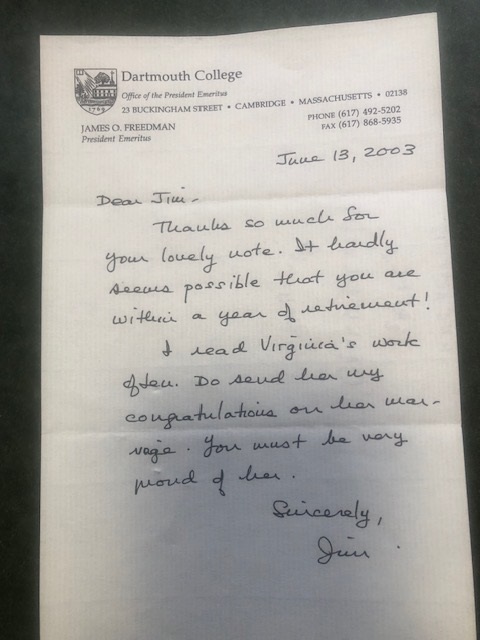 Dartmouth College
Office of the President Emeritus
23 BUCKINGHAM STREET • CAMBRIDGE • MASSACHUSETTS • 02138
PHONE (617) 492-5202
FAX (617) 868-5935
JAMES O. FREEDMAN
President Emeritus
June 13, 2003
Dear Jim-
Thanks so much for
your lovely note. It hardly
seems possible that you are
within a year of retirement!
I read Virginia's work
often. Do send her my
congratulations on her mar-
riage. You must be very
proud of her.
Sincerely,
Jim